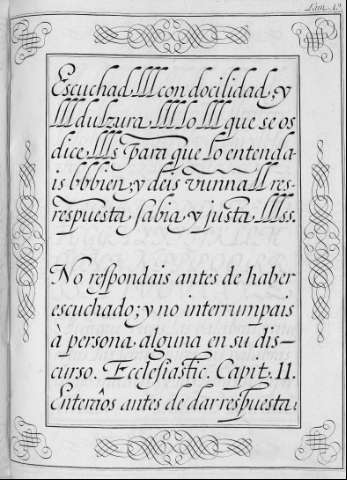 Lam. 13.
Escuchad lll con docilidad, y
lll dulzura lll lo lll que se os
dice llls para que lo entenda-
is bbbien, y deis vunnall res-
respuesta sabia y justa lllss.
No respondais antes de haber
escuchado; y no interrumpais
à persona alguna en su dis-
curso. Ecclesiastic. Capit. 11.
Enteraôs antes de dar respuesta.